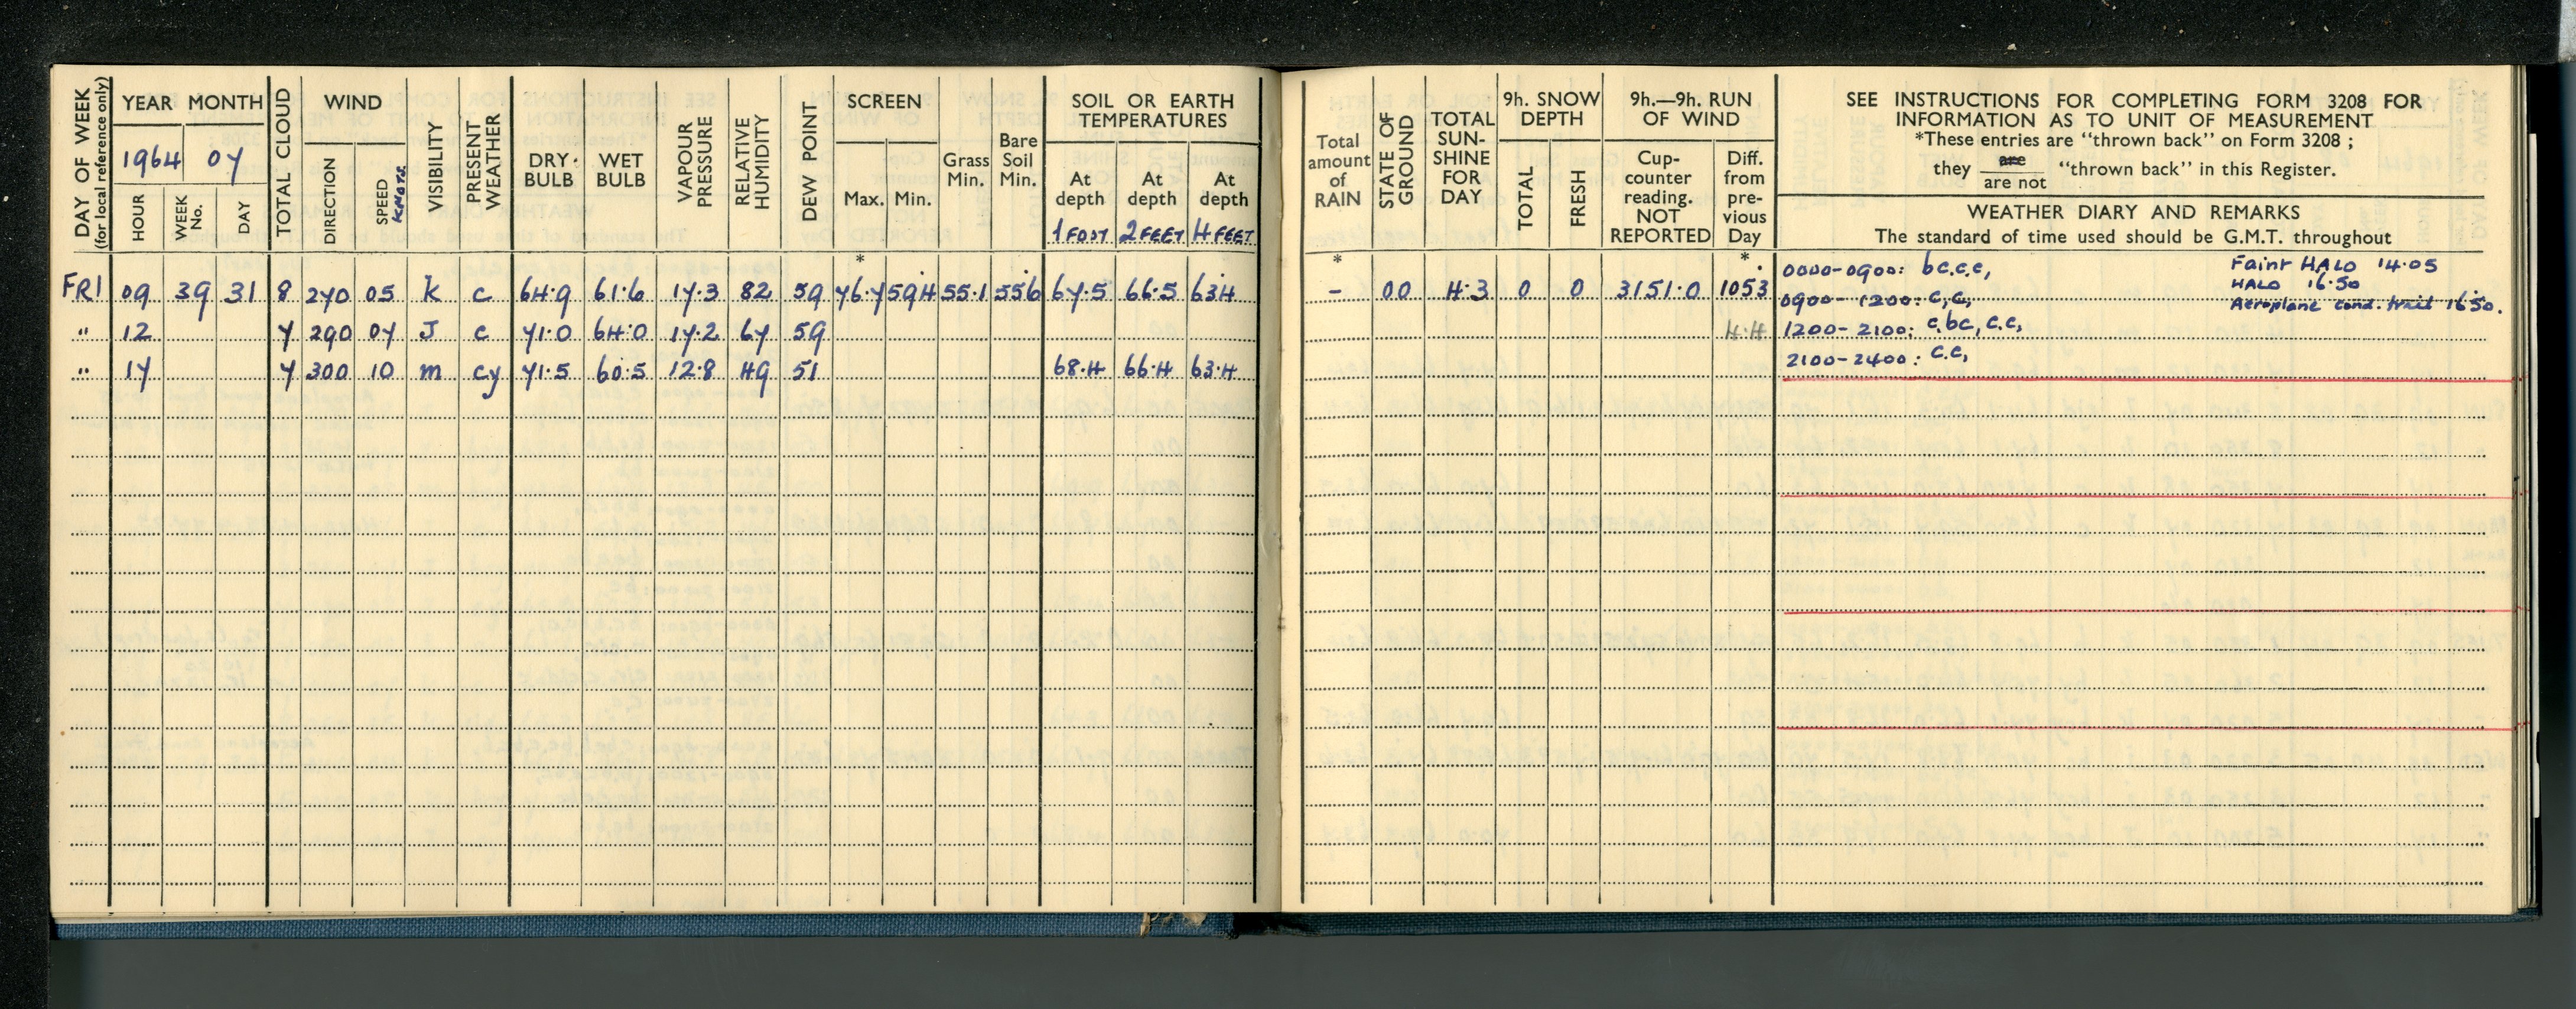 DAY OF WEEK
(for local reference only)
YEAR MONTH
1964 07
HOUR
WEEK No.
DAY
TOTAL CLOUD
WIND
DIRECTION
SPEED KNOTS
VISIBILITY
PRESENT WEATHER
DRY BULB
WET BULB
VAPOUR PRESSURE
RELATIVE HUMIDITY
DEW POINT
SCREEN
Max. Min.
Grass Min.
Bare Soil Min.
SOIL OR EARTH
TEMPERATURES
At depth 1 FOOT
At depth 2 FEET
At depth 4 FEET
* FRI 09 39 31 8 270 05 K c 64·9 61·6 17·3 82 59 76·7 59·4 55·1 55·6 67·5 66·5 63·4
" 12 7 290 07 J c 71·0 64·0 17·2 67 59
" 17 7 300 10 m cy 71·5 60·5 12·8 49 51 68·4 66·4 63·4
Total amount of RAIN
STATE OF GROUND
TOTAL SUN-SHINE FOR DAY
9h. SNOW DEPTH
TOTAL
FRESH
9h.—9h. RUN OF WIND
Cup-counter reading. NOT REPORTED
Diff. from pre-vious Day
* *
– 00 4·3 0 0 3151·0 105·3
4·4
SEE INSTRUCTIONS FOR COMPLETING FORM 3208 FOR
INFORMATION AS TO UNIT OF MEASUREMENT
*These entries are "thrown back" on Form 3208 ;
they are / are not "thrown back" in this Register.
WEATHER DIARY AND REMARKS
The standard of time used should be G.M.T. throughout
0000-0900: bc.c.c, Faint HALO 14·05
HALO 16·50
0900-1200: c,c, Aeroplane cond. trail 16·50.
1200-2100: c,bc, c.c,
2100-2400: c.c,